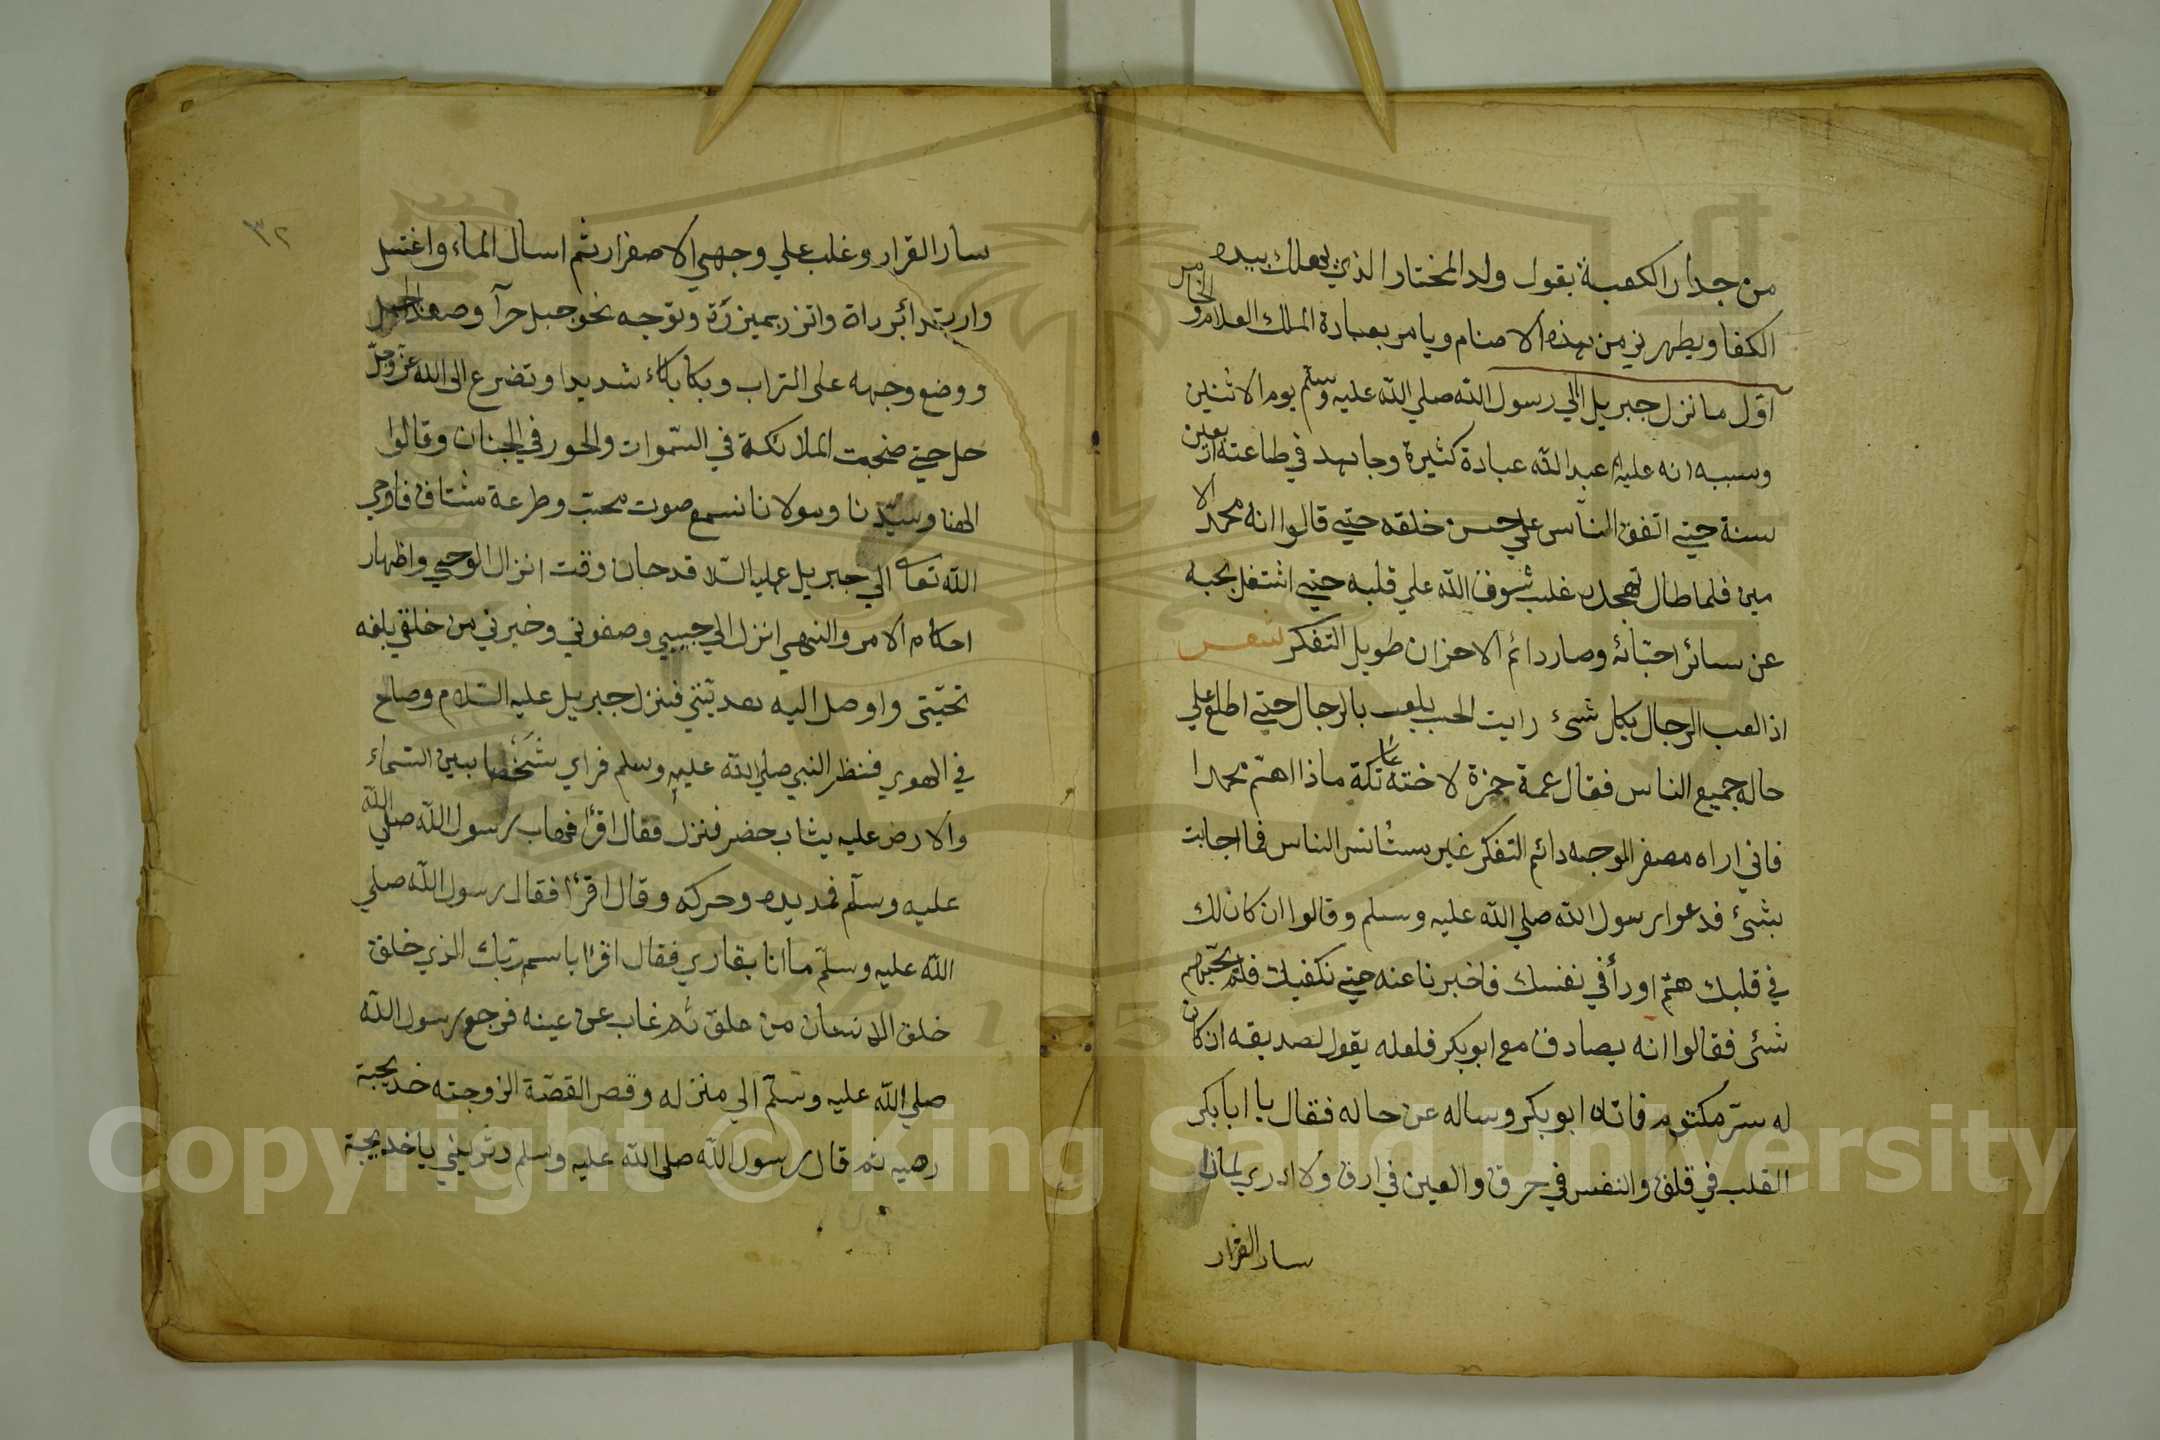 من جدار الكعبة يقول ولد المختار الذي يهلك بيده
الكفا ويطهرني من هذه الاصنام ويامر بعبادة الملك العلام
الخامس
اوّل ما نزل جبريل الي رسول الله صلي الله عليه وسلّم يوم الاثنين
وسببه انه عليه عبد الله عبادة كثيرة وجاهد في طاعته اربعين
سنة حتي اتفق الناس علي حسن خلقه حتي قالوا انه محمد الا
مين فلما طال تهجده غلب شوق الله علي قلبه حتي اشتغل بحبه
عن سائر احبّائه وصار دائم الاحزان طويل التفكر شعر
اذا لعب الرجال بكل شئ رايت الحب يلعب بالرجال حتي اطلع علي
حاله جميع الناس فقال عمه حمزة لاخته عاتكة ماذا اهمّ محمدا
فاني اراه مصفر الوجه دائم التفكر غير مستأنس الناس فما اجابت
بشئ فدعوا رسول الله صلي الله عليه وسلم وقالوا ان كان لك
في قلبك همّ او رأ في نفسك فاخبرنا عنه حتي نكفيك فلم يخبرهم
شئ فقالوا انه يصادق مع ابو بكر فلعله يقول لصديقه ان كان
له سرّ مكتوم فاتاه ابو بكر وساله عن حاله فقال يا ابا بكر
القلب في قلق والنفس في حرق والعين في ارق ولا ادري لماذا
سار القرار
٣٢
سار القرار وغلب علي وجهي الاصفرار ثم اسال الماء واغتسل
وارتد ائر داة واتزر بميزرة وتوجه نحو جبل حرآ وصعد الجبل
ووضع وجهه على التراب وبكا بكاء شديدا وتضرع الى الله عزّ وجلّ
حل حتي ضجت الملائكة في السّموات والحور في الجنان وقالوا
الهنا وسيّدنا ومولانا نسمع صوت محبّ وضرعة مشتاق فاوحي
الله تعا الي جبريل عليه السّلا قد حان وقت انزال الوحي واظهار
احكام الامر والنهي انزل الي حبيبي وصفوتي وخيرتي من خلقي بلغه
تحيّتى واوصل اليه هديّتي فنزل جبريل عليه السّلام وصاح
في الهوي فنظر النبي صلي الله عليه وسلم فراي شخصا بين السّماء
والارض عليه يثاب حضر فنزل فقال اقرأ فهاب رسول الله صلي الله
عليه وسلّم فمد يده وحركه وقال اقرأ فقال رسول الله صلي
الله عليه وسلّم ما انا بقاري فقال اقرا باسم ربّك الذي خلق
خلق الانسان من علق ثم غاب عن عينه فرجع رسول الله
صلي الله عليه وسلّم الي منزله وقص القصّة الزوجته خديجة
رضيه ثم قال رسول الله صلى الله عليه وسلم دثريني يا خديجة
Copyright © King Saud University